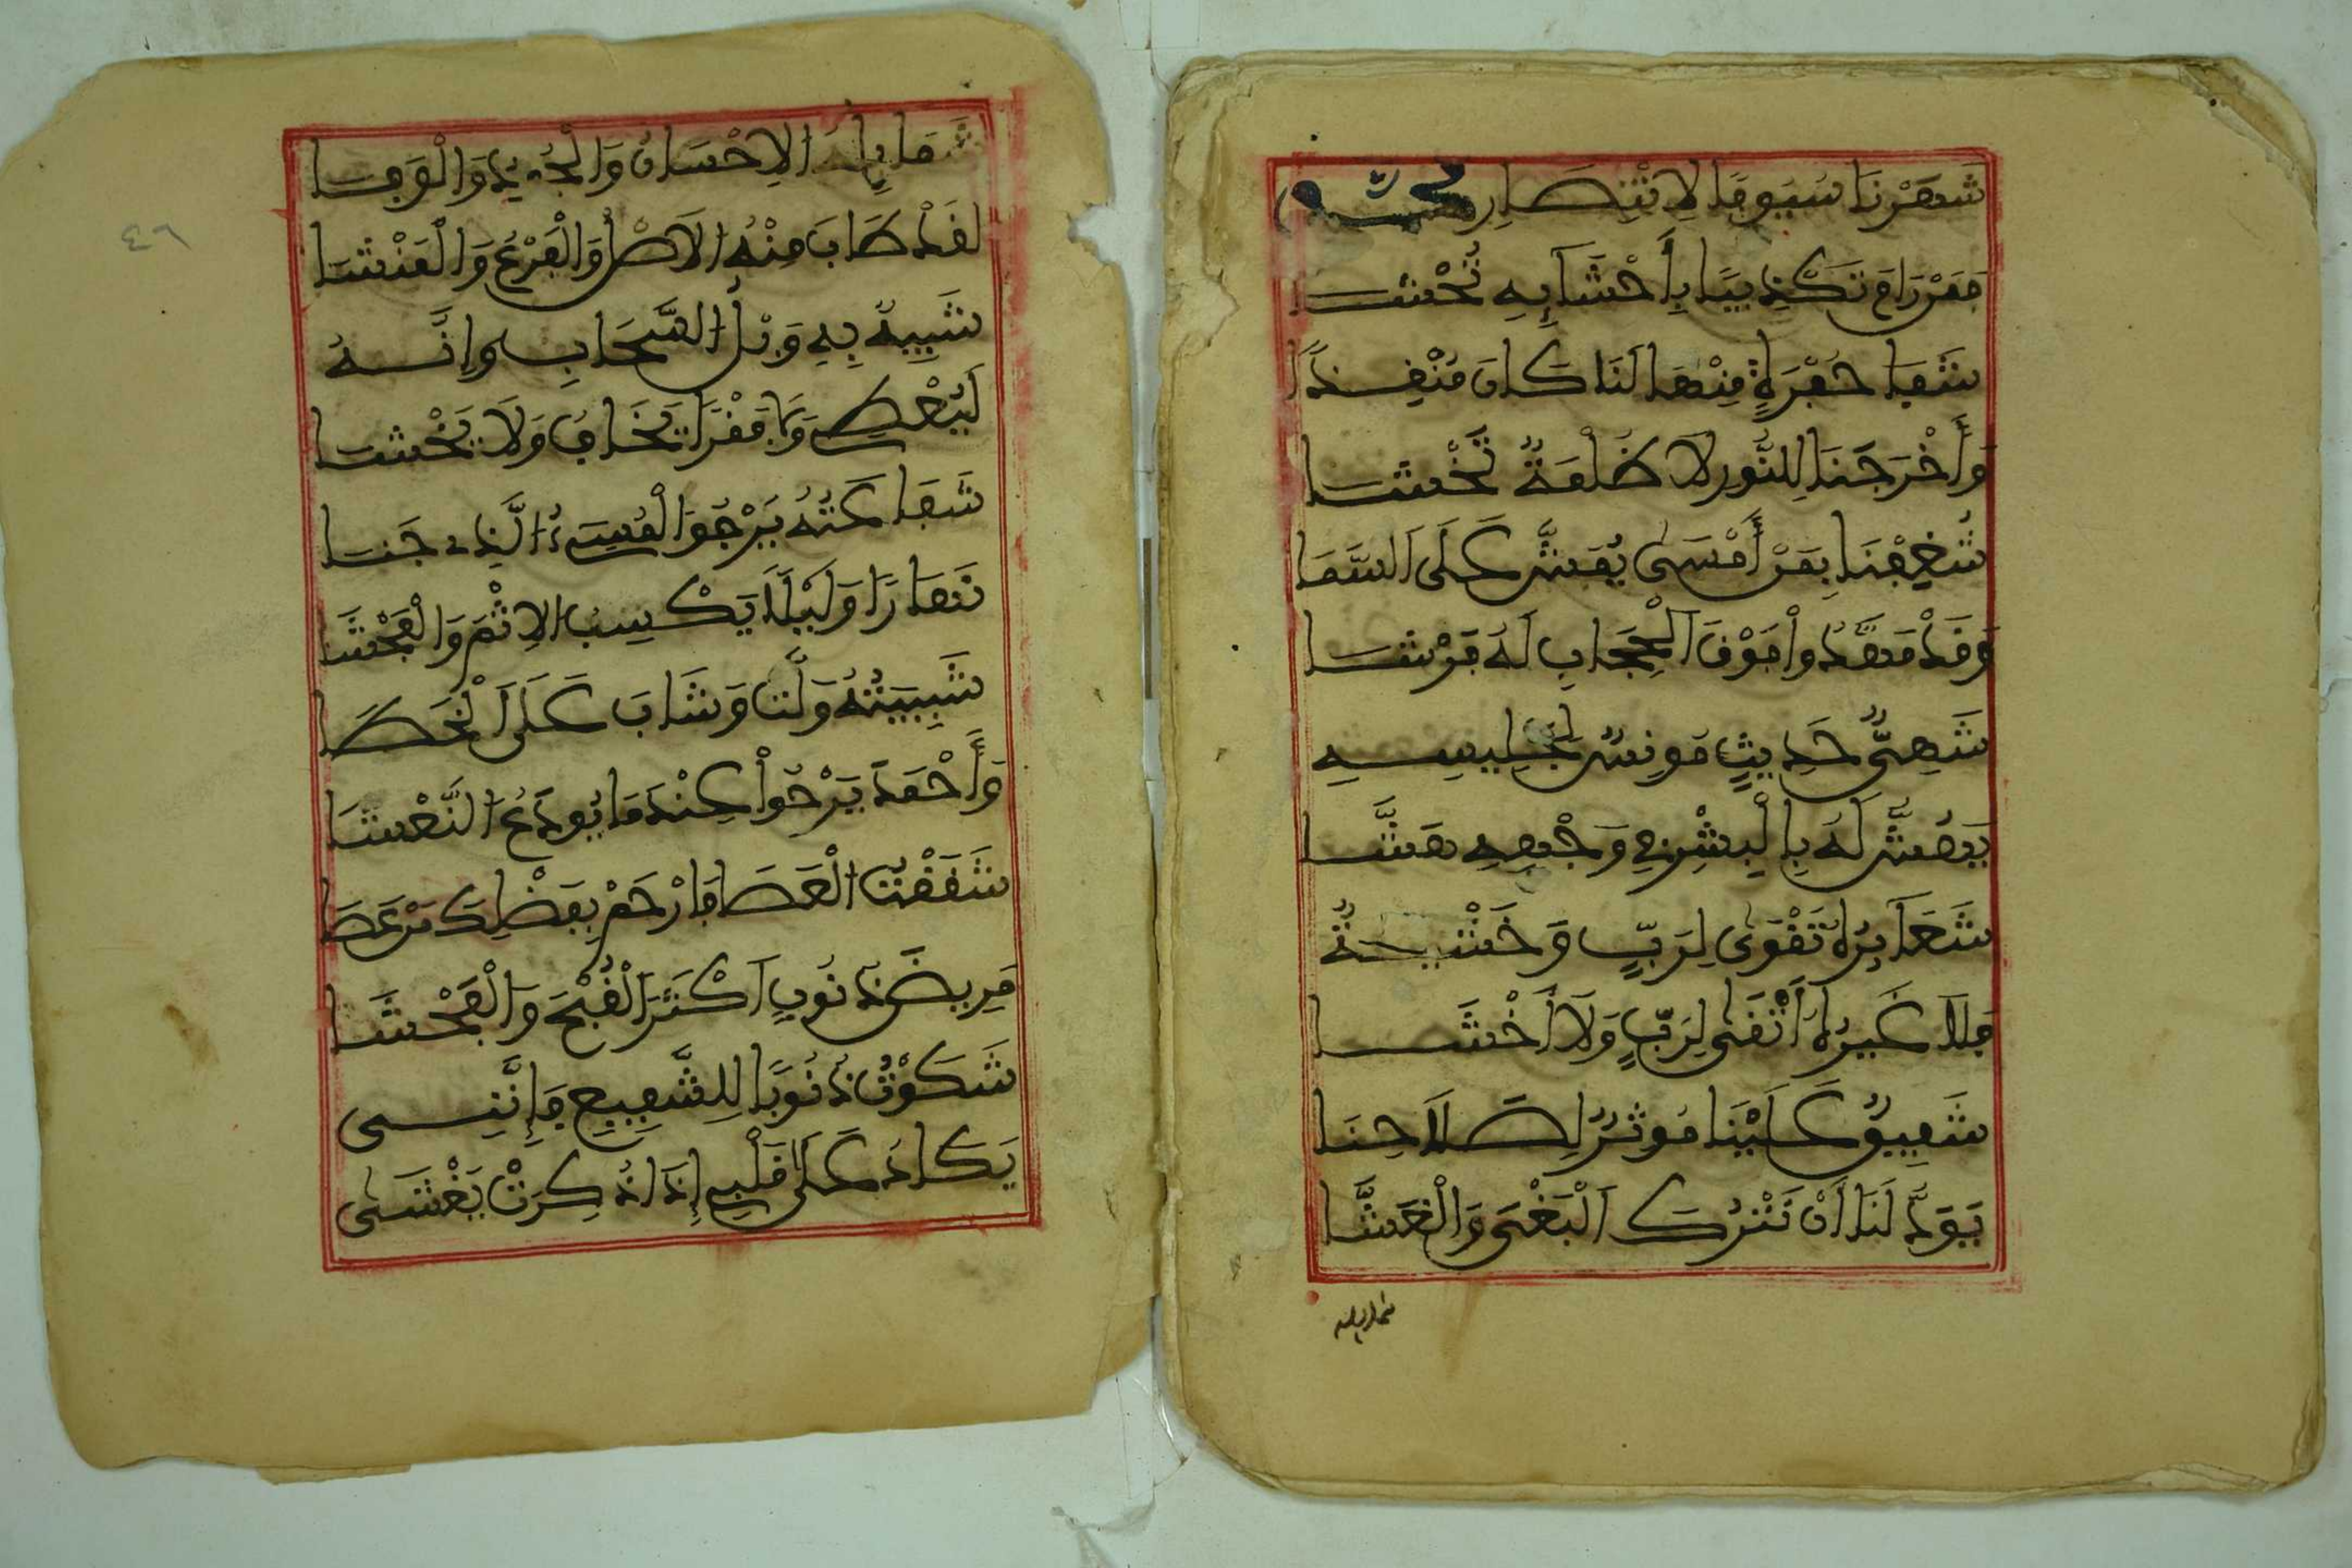 شَهَرْنَا سُيُوفًا لِانْتِصَارِ مُحَمَّدٍ
فَمَنْ رَامَ تَكْذِيبًا بِأَحْشَائِهِ تُحْشَا
شَفَا حُفْرَةٍ مِنْهَا لَنَا كَانَ مُنْقِذًا
وَأَخْرَجَنَا لِلنُّورِ لَا ظُلْمَةٌ تَخْشَا
شُغِفْنَا بِمَنْ أَمْسَى يُمَشَّى عَلَى السَّمَا
وَقَدْ مَهَّدُواْ فَوْقَ الْحِجَابِ لَهُ فَرْشَا
شَهِيُّ حَدِيثٍ مُونِسٌ لِجَلِيسِهِ
يَهُشُّ لَهُ بِالْبِشْرِ فِي وَجْهِهِ هَشَّا
شَعَائِرُهُ تَقْوَى لِرَبٍّ وَخَشْيَةٌ
فَلَا غَيْرُهُ أَتْقَى لِرَبٍّ وَلَا أَخْشَا
شَفِيقٌ عَلَيْنَا مُوثِرٌ لِصَلَاحِنَا
يَوَدُّ لَنَا أَنْ نَتْرُكَ الْبَغْيَ وَالْغَشَّا
شمايله
شَمَايِلُهُ الِاحْسَانُ وَالْجُودُ وَالْوَفَا
لَقَدْ طَابَ مِنْهُ الْاَصْلُ وَالْفَرْعُ وَالْمَنْشَا
شَبِيهٌ بِهِ وَبْلُ السَّحَابِ وَإِنَّهُ
لَيُعْطِي وَمَا فَقْرًا يَخَافُ وَلَا يَخْشَا
شَفَاعَتُهُ يَرْجُواْ الْمُسِيءُ الَّذِي جَنَا
نَهَارًا وَلَيْلًا يَكْسِبُ الِاثْمَ وَالْفَحْشَا
شَبِيبَتُهُ وَلَّتْ وَشَابَ عَلَى الْخَطَا
وَأَحْمَدَ يَرْجُواْ عِنْدَمَا يُودَعُ النَّعْشَا
شَقَقْتُ الْعَصَا فَارْحَمْ بِفَضْلِكَ مَنْ عَصَا
مَرِيضَ ذُنُوبٍ اَكْثَرَ الْقُبْحَ وَالْفَحْشَا
شَكَوْتُ ذُنُوبًا لِلشَّفِيعِ فَإِنَّنِي
يَكَادُ عَلَى قَلْبِي إِذَا ذُكِرَتْ يَغْشَى
٤٦